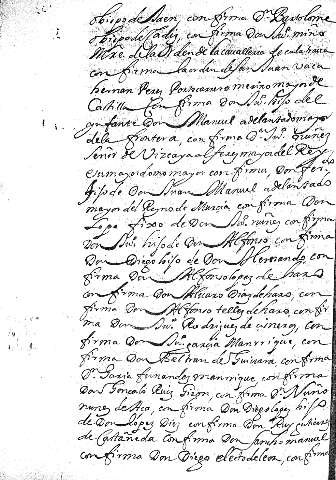 obispo de Jaen, con firma Dn Bartolome
obispo de Cadis, con firma Don Juº. nuño
Mre. de la orden de la cavalleria de calatrava
con firma la orden de san Juan vaca
hernan Perez Portocarrero merino mayor de
Castilla con firma Don Juº. hijo del
ynfante Don Manuel adelantado mayor
de la frontera, con firma Dn Juº. nuñez
señor de Vizcaya alferez mayor del Rey
su mayordomo mayor con firma, Don fer
hijo de Don Juan Manuel adelantado
mayor del Reyno de Murcia con firma Don
Lope fixo de Don Juº. nuñes con firma
Don Juº. hijo de Don Alfonso, con firma
Don Diego hijo de Don Hernando, con
firma Don Alfonso lopez de haro
con firma Don Alvaro Diaz de haro, con
firma Don Alfonso tellez de haro, con fir
ma Don Juº. Rodriguez de cisneros, con
firma Don Juº. garcia Manrrique, con
firma Don Beltran de Guivara, con firma
Dn. Garcia fernandes manrrique, con firma
Don Gonçalo Ruiz Giron, con firma Dn. Nuño
nunez de Aça, con firma Don Diego lopez hijº
de Don Lopez Diez con firma Don Ruy gutierrez
de Castañeda con firma Don Sancho manuel
con firma Don Diego electo de leon, con firma